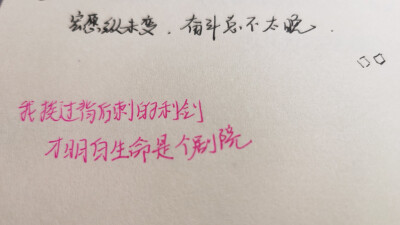 宏愿纵未变，奋斗总不太晚
我挨过背后刺的利剑
才明白生命是个剧院